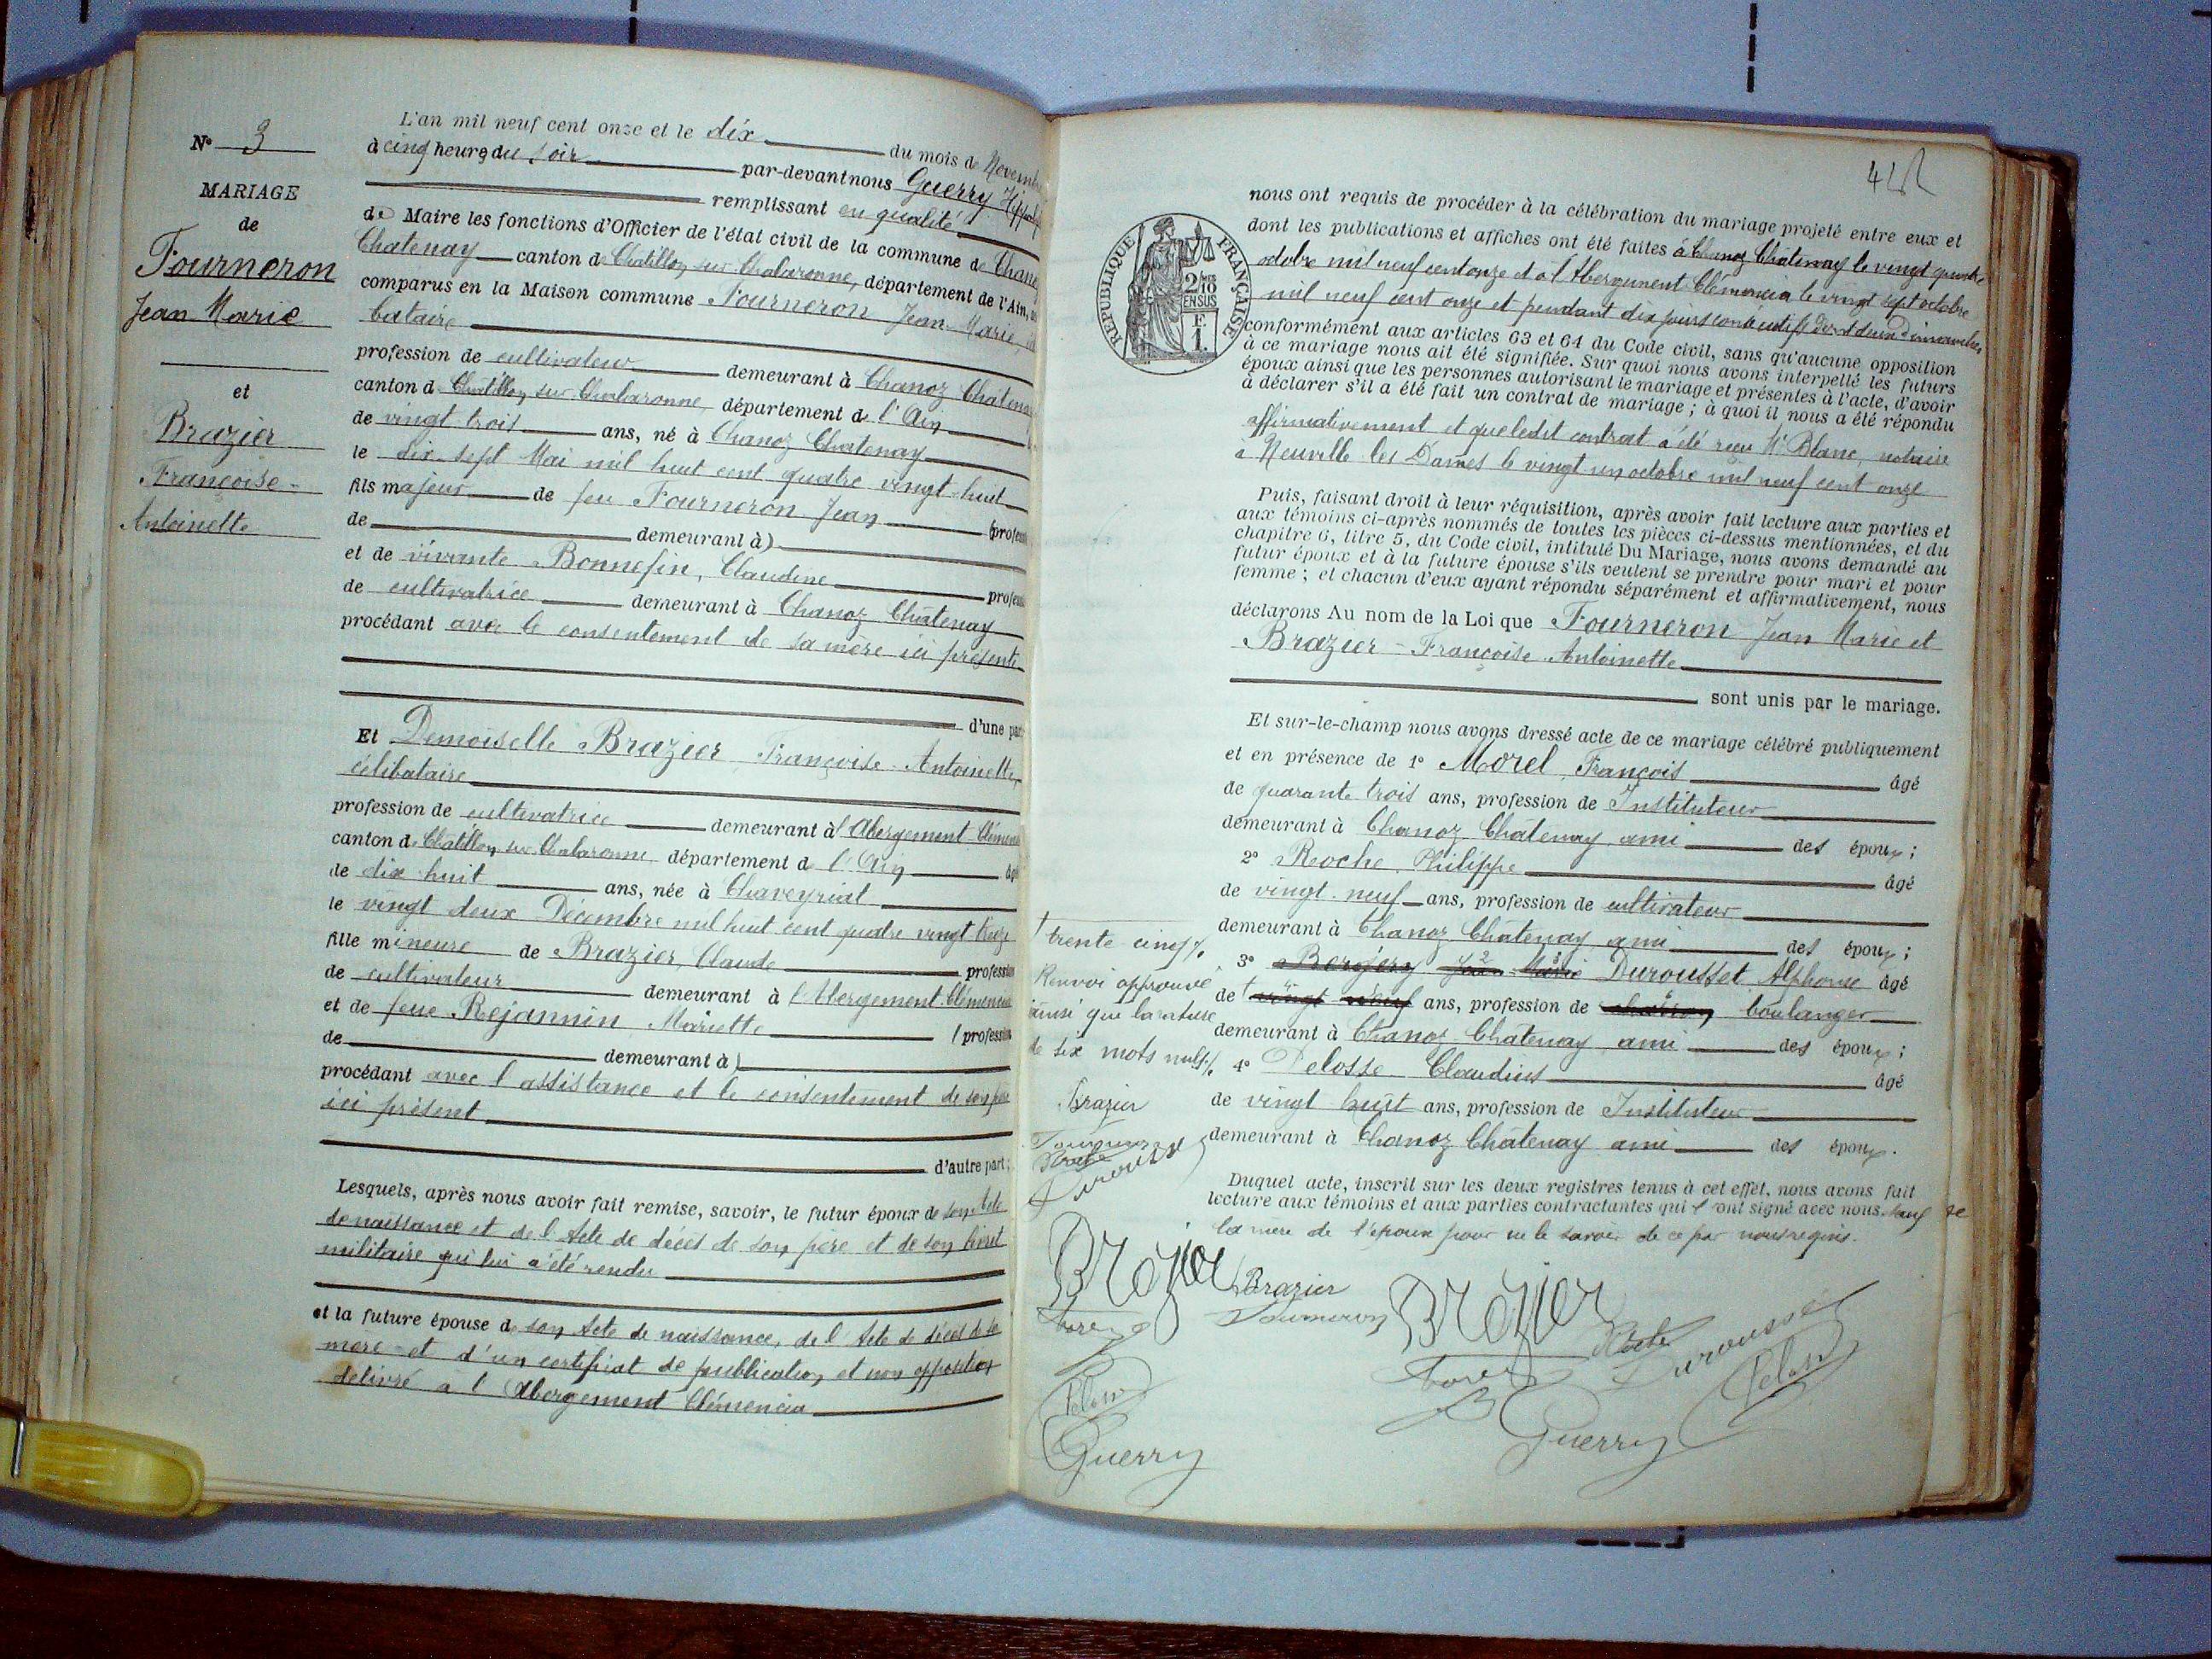 N° 3
MARIAGE
de
Fourneron
Jean Marie
et
Brazier
Françoise-
Antoinette
L'an mil neuf cent onze et le dix du mois de Novembre
à cinq heures du soir par-devant nous Guerry
remplissant en qualité
de Maire les fonctions d'Officier de l'état civil de la commune de Chanoz
Chatenay canton de Chatillon sur Chalaronne, département de l'Ain,
comparus en la Maison commune Fourneron Jean-Marie,
bataire
profession de cultivateur demeurant à Chanoz Châtenay
canton de Chatillon sur Chalaronne, département de l'Ain
de vingt trois ans, né à Chanoz Chatenay
le dix-sept Mai mil huit cent quatre vingt-huit
fils majeur de feu Fourneron Jean (profession
de demeurant à)
et de vivante Bonnefin, Claudine profession
de cultivatrice demeurant à Chanoz Châtenay
procédant avec le consentement de sa mère ici présente
d'une part
Et Demoiselle Brazier Françoise-Antoinette,
célibataire
profession de cultivatrice demeurant à l'Abergement Clémencia
canton de Châtillon sur Chalaronne département de l'Ain âgé
de dix huit ans, née à Chaveyriat
le vingt deux Décembre mil huit cent quatre vingt-treize
fille mineure de Brazier, Claude profession
de cultivateur demeurant à l'Abergement-Clémencia
et de feue Rejannin Mariette (profession
de demeurant à)
procédant avec l'assistance et le consentement de son père
ici présent
d'autre part;
Lesquels, après nous avoir fait remise, savoir, le futur époux de son Acte
de naissance et de l'Acte de décès de son père et de son livret
militaire qui lui a été rendu
et la future épouse de son Acte de naissance, de l'Acte de décès de sa
mère et d'un certificat de publication et non opposition
délivré à l'Abergement Clémencia
REPUBLIQUE FRANÇAISE
2/10 EN SUS
1 F.
nous ont requis de procéder à la célébration du mariage projeté entre eux et
dont les publications et affiches ont été faites à Chanoz Châtenay le vingt quatre
octobre mil neuf cent onze et à l'Abergement Clémencia le vingt sept octobre
mil neuf cent onze et pendant dix jours consécutifs dont deux Dimanches
conformément aux articles 63 et 64 du Code civil, sans qu'aucune opposition
à ce mariage nous ait été signifiée. Sur quoi nous avons interpellé les futurs
époux ainsi que les personnes autorisant le mariage et présentes à l'acte, d'avoir
à déclarer s'il a été fait un contrat de mariage; à quoi il nous a été répondu
affirmativement et que ledit contrat a été reçu Me Blanc, notaire
à Neuville les Dames le vingt-un octobre mil neuf cent onze
Puis, faisant droit à leur réquisition, après avoir fait lecture aux parties et
aux témoins ci-après nommés de toutes les pièces ci-dessus mentionnées, et du
chapitre 6, titre 5, du Code civil, intitulé Du Mariage, nous avons demandé au
futur époux et à la future épouse s'ils veulent se prendre pour mari et pour
femme; et chacun d'eux ayant répondu séparément et affirmativement, nous
déclarons Au nom de la Loi que Fourneron Jean Marie et
Brazier - Françoise Antoinette
sont unis par le mariage.
Et sur-le-champ nous avons dressé acte de ce mariage célébré publiquement
et en présence de 1° Morel, François âgé
de quarante trois ans, profession de Instituteur
demeurant à Chanoz Châtenay, ami des époux;
2° Roche, Philippe âgé
de vingt-neuf ans, profession de cultivateur
demeurant à Chanoz Châtenay ami des époux;
3° Durousset Alphonse âgé
de vingt neuf ans, profession de boulanger
demeurant à Chanoz Châtenay, ami des époux;
4° Pelosse Claudius âgé
de vingt huit ans, profession de Instituteur
demeurant à Chanoz Châtenay ami des époux.
Duquel acte, inscrit sur les deux registres tenus à cet effet, nous avons fait
lecture aux témoins et aux parties contractantes qui l'ont signé avec nous. sauf
la mère de l'époux pour ne le savoir de ce par nous requis.
trente cinq
Renvoi approuvé
ainsi que la rature
de six mots nuls
Brazier
Durousset
Brazier Brazier Brazier
Fourneron
Roche Durousset
Guerry Guerry